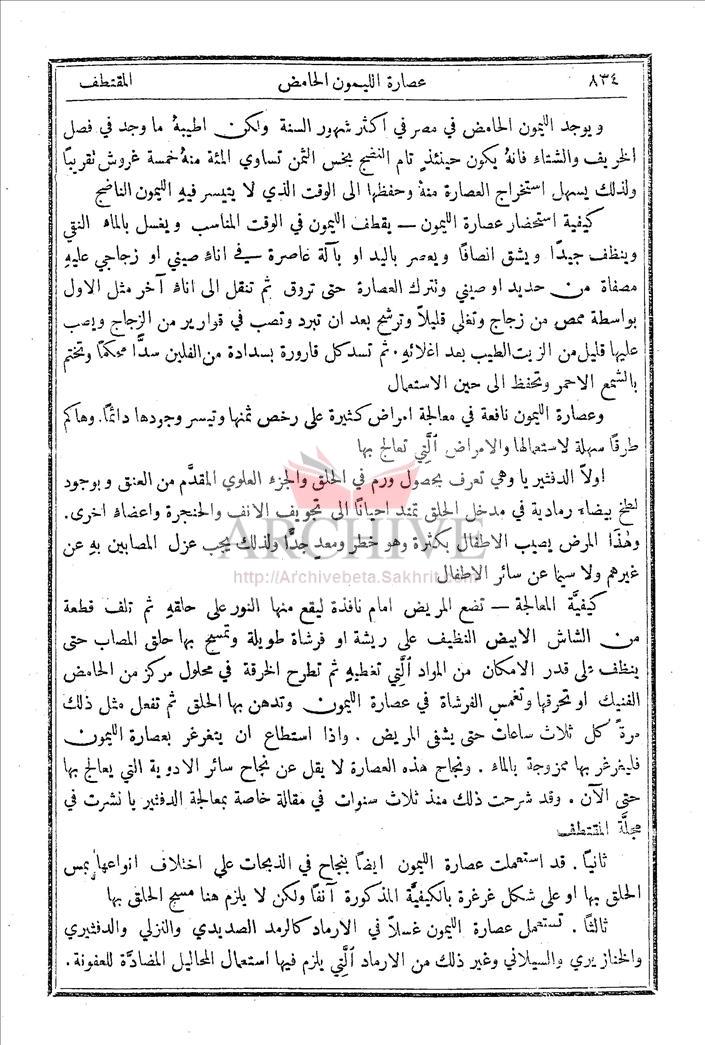 ٨٣٤ عصارة الليمون الحامض المقتطف
ويوجد الليمون الحامض في مصر في اكثر شهور السنة ولكن اطيبهُ ما وجد في فصل
الخريف والشتاء فانهُ يكون حينئذٍ تام النضج بخس الثمن تساوي المئة منهُ خمسة غروش تقريبًا
ولذلك يسهل استخراج العصارة منهُ وحفظها الى الوقت الذي لا يتيسر فيهِ الليمون الناضج
كيفية استحضار عصارة الليمون — يقطف الليمون في الوقت المناسب ويغسل بالماء النقي
وينظف جيدًا ويشق انصافًا ويعصر باليد او بآلة عاصرة في اناءٍ صيني او زجاجي عليهِ
مصفاة من حديد او صيني وتترك العصارة حتى تروق ثم تنقل الى اناءٍ آخر مثل الاول
بواسطة ممص من زجاج وتغلي قليلاً وترشح بعد ان تبرد وتصب في قوارير من الزجاج ويصب
عليها قليل من الزيت الطيب بعد اغلائهِ. ثم تسد كل قارورة بسدادة من الفلين سدًّا محكمًا وتختم
بالشمع الاحمر وتحفظ الى حين الاستعمال
وعصارة الليمون نافعة في معالجة امراض كثيرة على رخص ثمنها وتيسر وجودها دائمًا. وهاكم
طرقًا سهلة لاستعمالها والامراض الَّتي تعالج بها
اولاً الدفثيريا وهي تعرف بحصول ورم في الحلق والجزء العلوي المقدَّم من العنق وبوجود
لطخ بيضاء رمادية في مدخل الحلق تمتد احيانًا الى تجويف الانف والحنجرة واعضاء اخرى.
وهٰذا المرض يصيب الاطفال بكثرة وهو خطر ومعدٍ جدًّا ولذلك يجب عزل المصابين بهِ عن
غيرهم ولا سيما عن سائر الاطفال
كيفيَّة المعالجة — تضع المريض امام نافذة ليقع منها النور على حلقهِ ثم تلف قطعة
من الشاش الابيض النظيف على ريشة او فرشاة طويلة وتمسح بها حلق المصاب حتى
ينظف على قدر الامكان من المواد الَّتي تغطيهِ ثم تطرح الخرقة في محلول مركز من الحامض
الفنيك او تحرقها وتغمس الفرشاة في عصارة الليمون وتدهن بها الحلق ثم تفعل مثل ذلك
مرةً كل ثلاث ساعات حتى يشفى المريض. واذا استطاع ان يتغرغر بعصارة الليمون
فليتغرغر بها ممزوجة بالماء. ونجاح هذه العصارة لا يقل عن نجاح سائر الادوية التي يعالج بها
حتى الآن. وقد شرحت ذلك منذ ثلاث سنوات في مقالة خاصة بمعالجة الدفثيريا نشرت في
مجلَّة المقتطف
ثانيًا. قد استعملت عصارة الليمون ايضًا بنجاح في الذبحات على اختلاف انواعها بمس
الحلق بها او على شكل غرغرة بالكيفيَّة المذكورة آنفًا ولكن لا يلزم هنا مسح الحلق بها
ثالثًا. تستعمل عصارة الليمون غسلاً في الارماد كالرمد الصديدي والنزلي والدفثيري
والخنازيري والسيلاني وغير ذلك من الارماد الَّتي يلزم فيها استعمال المحاليل المضادَّة للعفونة.
ARCHIVE
http://Archivebeta.Sakhrit.com